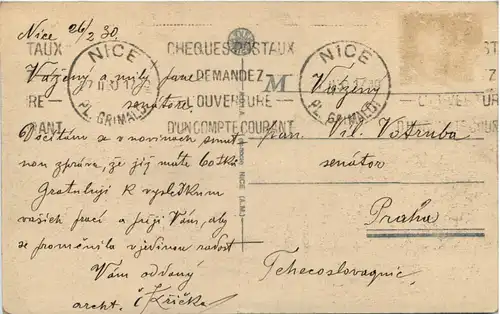 Nice 26/2 30.
NICE
PL. GRIMALDI
CHEQUES POSTAUX
DEMANDEZ
L'OUVERTURE
D'UN COMPTE COURANT
NICE
PL. GRIMALDI
Vážený a milý pane
senátore,
Dočítám se v novinách smut
nou zprávu, že jej máte
Gratuluji k výsledkům
vašich prací a přeji Vám, aby
se proměnila v jedinou radost
Vám oddaný
archt.
M
Vážený
pan Vil. Votruba
senátor
Praha
Tchecoslovaquie